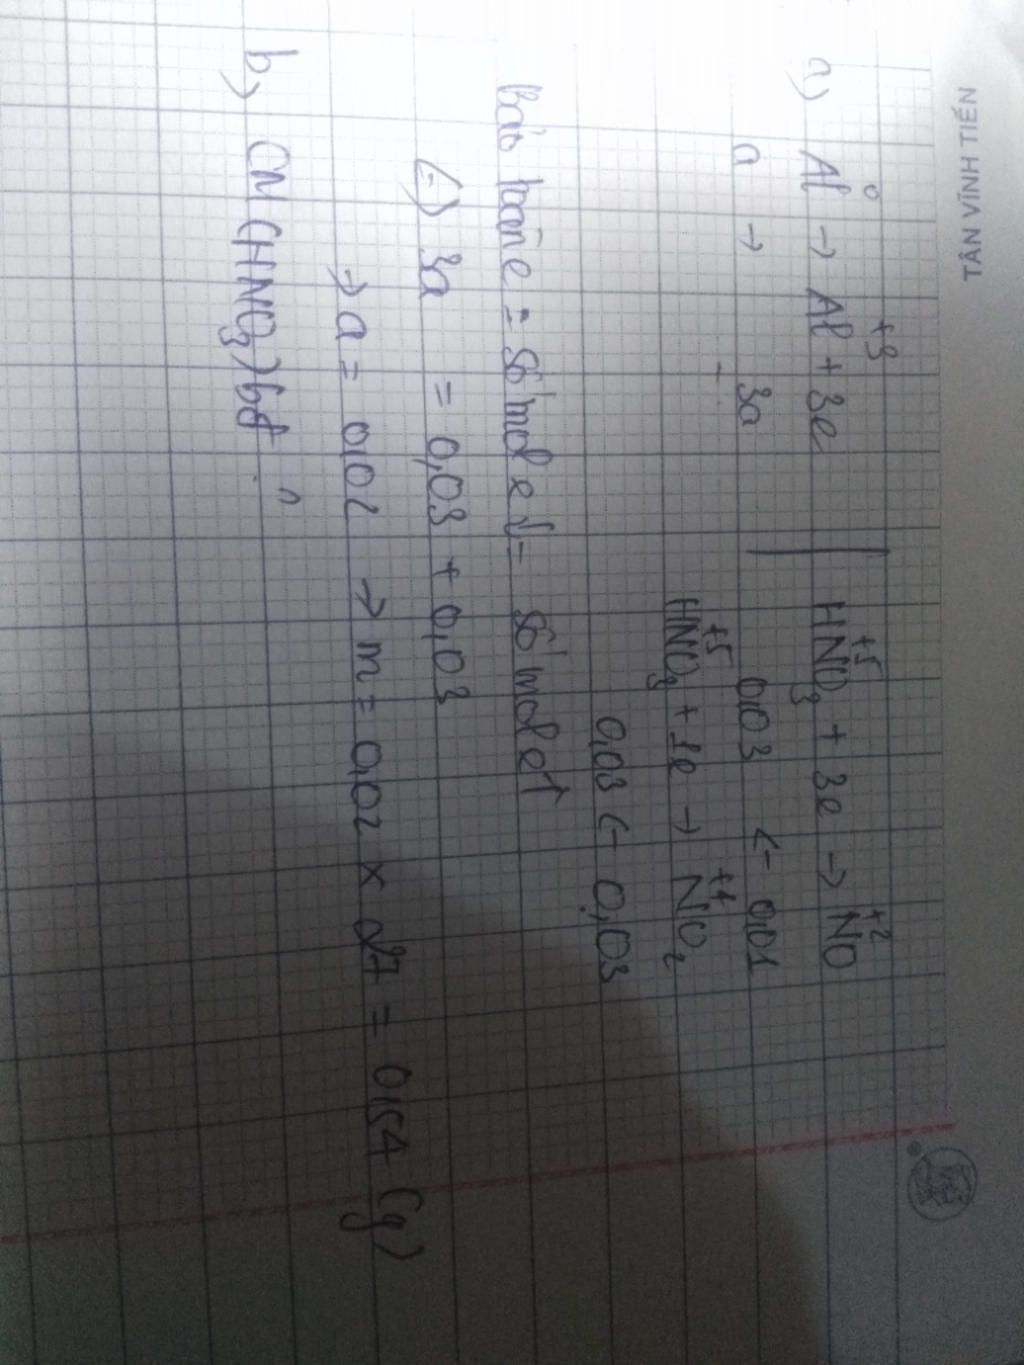 TÂN VĨNH TIẾN
a) Al⁰ → Al⁺³ + 3e | HN⁺⁵O₃ + 3e → N⁺²O
a → 3a 0,03 <- 0,01
HN⁺⁵O₃ + 1e → N⁺⁴O₂
0,03 <- 0,03
bảo toàn e = số mol e↓ = số mol e↑
<=> 3a = 0,03 + 0,03
→ a = 0,02 → m = 0,02 x 27 = 0,54 (g)
b) CM (HNO₃)bđ